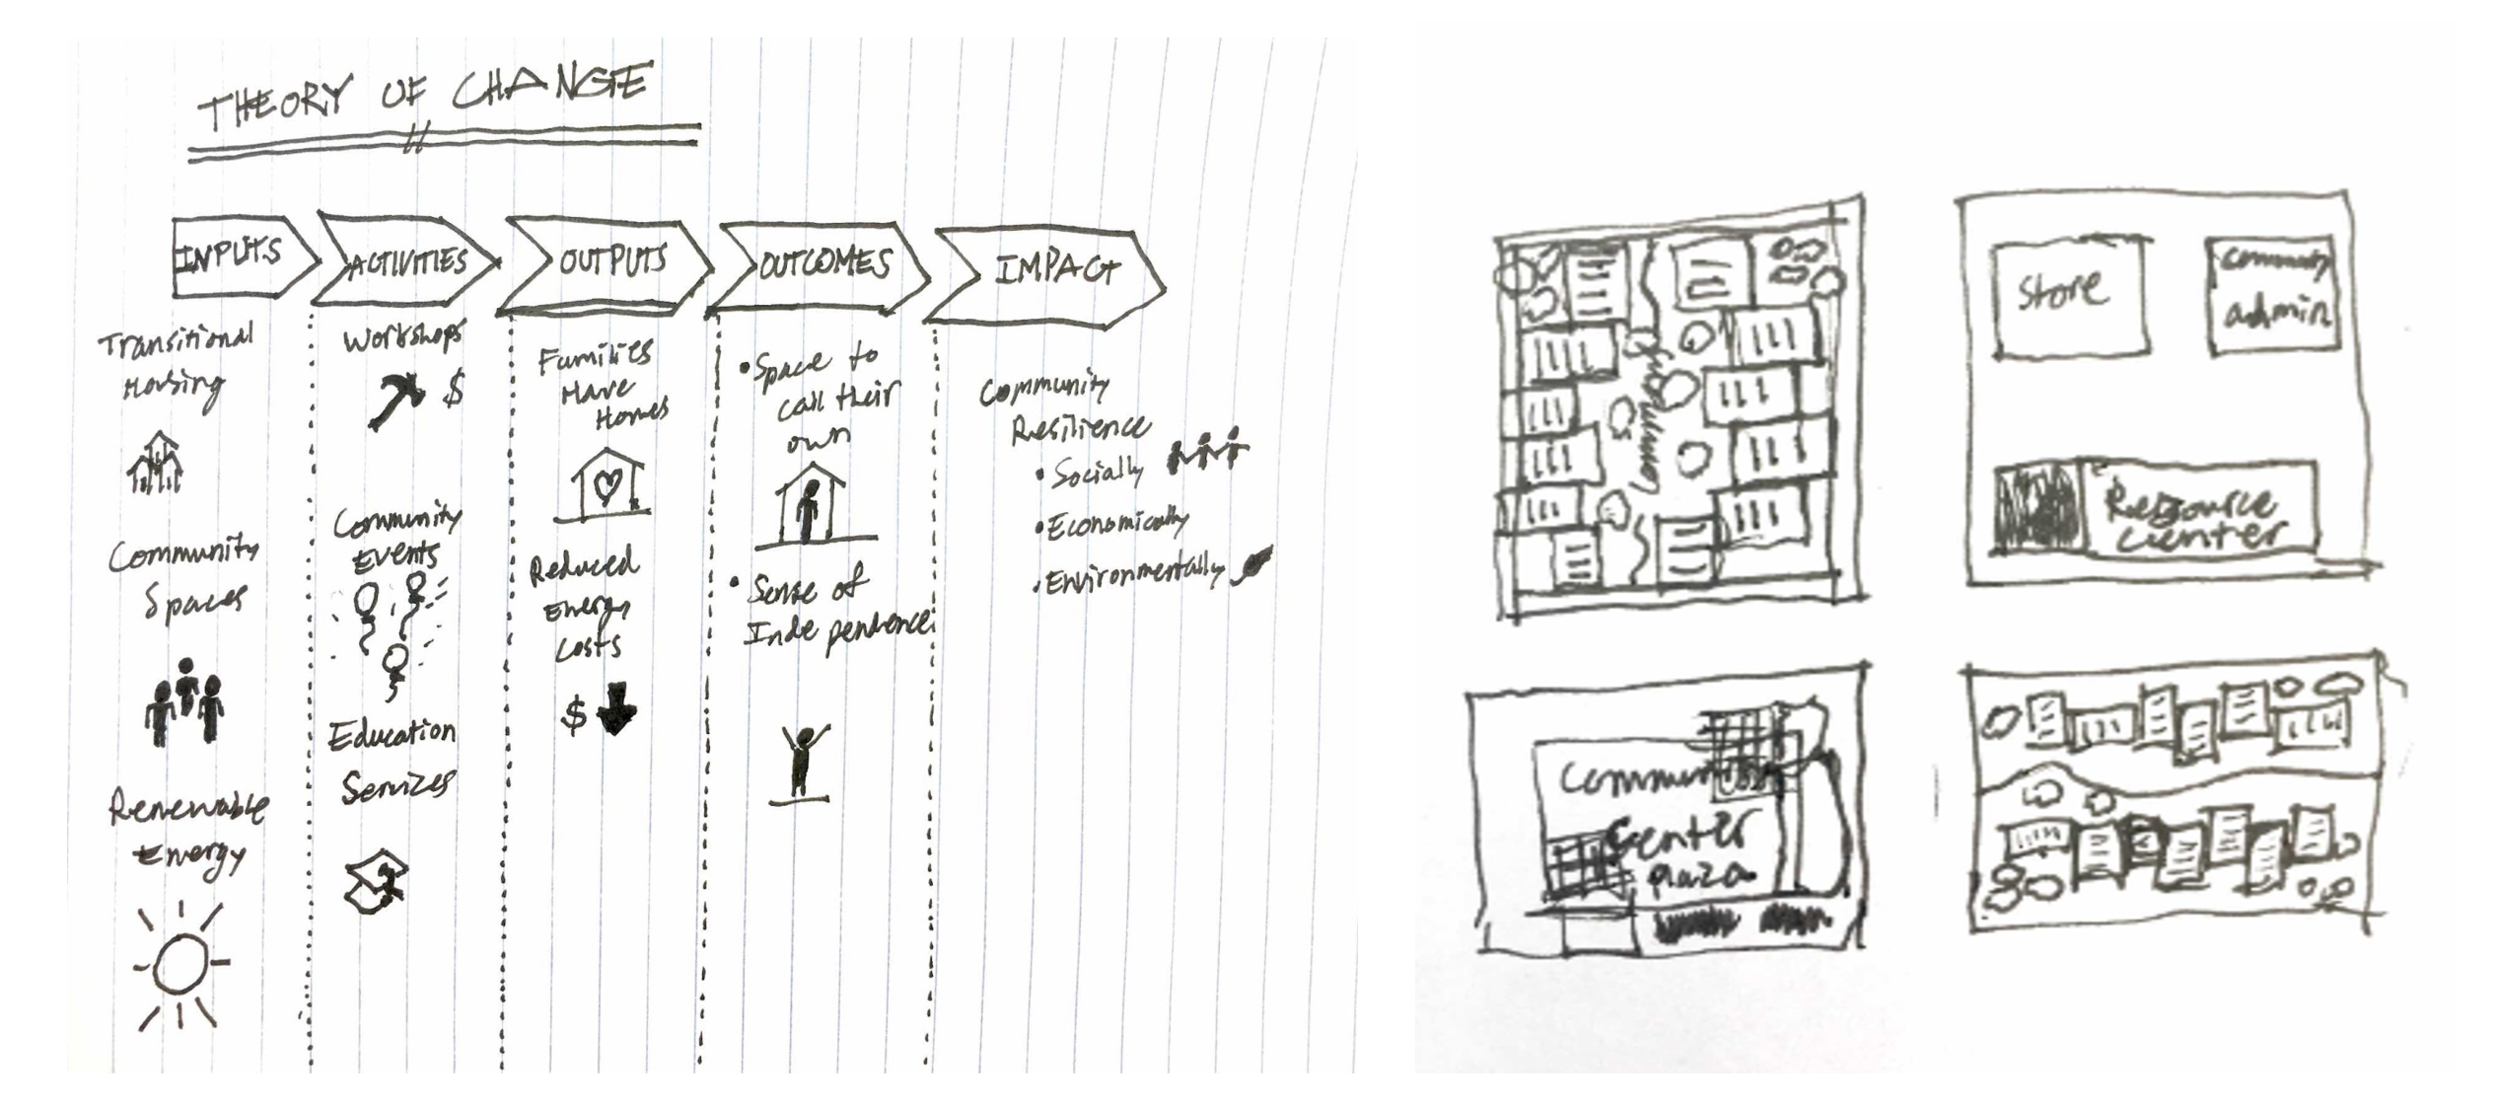 THEORY OF CHANGE
INPUTS
ACTIVITIES
OUTPUTS
OUTCOMES
IMPACT
Transitional
Housing
Community
Spaces
Renewable
Energy
Workshops
$
Community
Events
Education
Services
Families
Have
Homes
Reduced
Energy
Costs
$
• Space to
call their
own
• Sense of
Independence
Community
Resilience
• Socially
• Economically
• Environmentally
Store
Community
admin
Resource
Center
Community
Center
Plaza